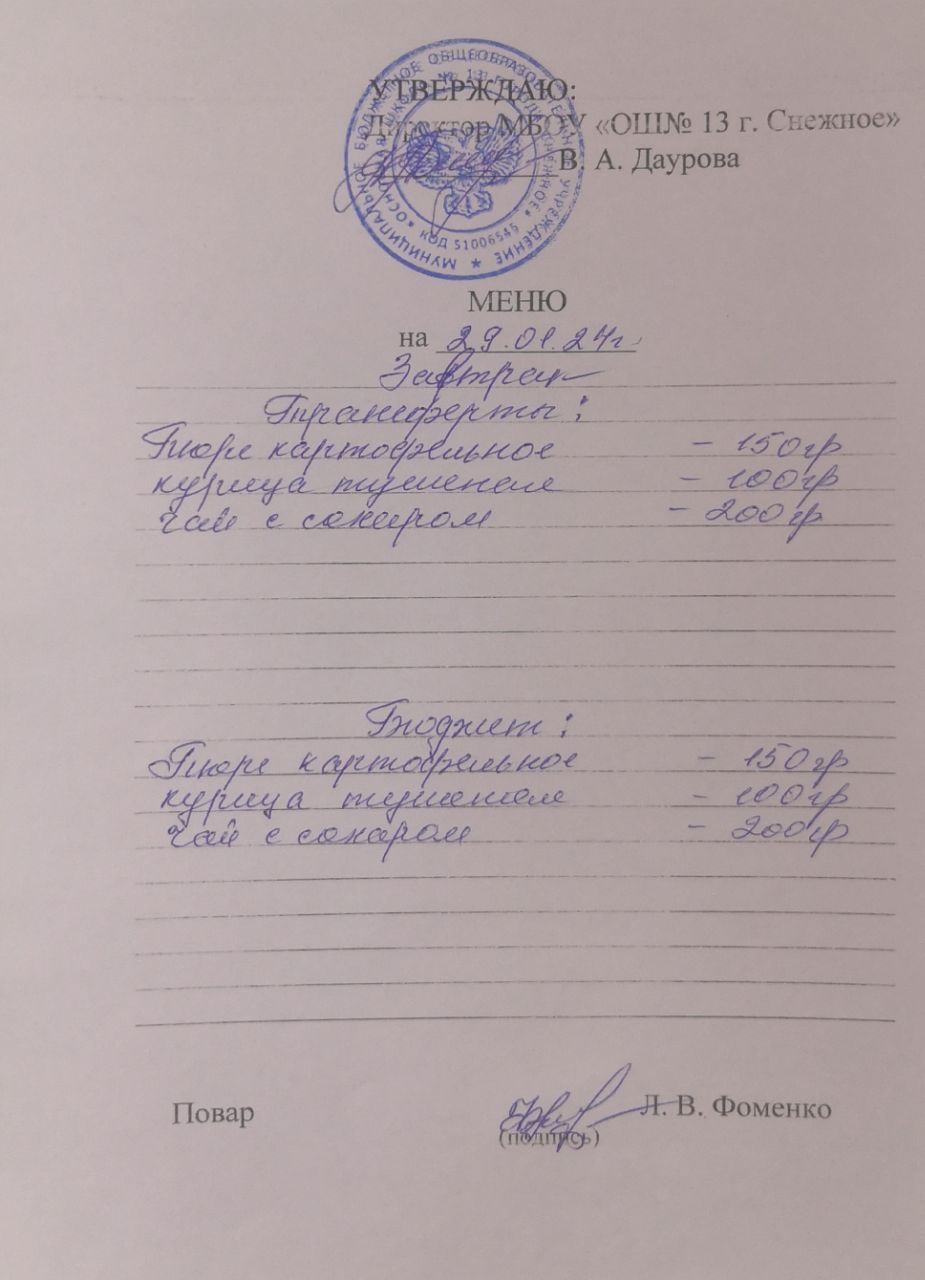 МУНИЦИПАЛЬНОЕ БЮДЖЕТНОЕ ОБЩЕОБРАЗОВАТЕЛЬНОЕ УЧРЕЖДЕНИЕ
КОД 51006545
УТВЕРЖДАЮ:
Директор МБОУ «ОШ№ 13 г. Снежное»
В. А. Даурова
МЕНЮ
на 29.01.24г.
Завтрак
Трансферты:
Пюре картофельное - 150гр
курица тушеная - 100гр
Чай с сахаром - 200гр
Бюджет:
Пюре картофельное - 150гр
курица тушеная - 100гр
Чай с сахаром - 200гр
Повар Л. В. Фоменко
(подпись)